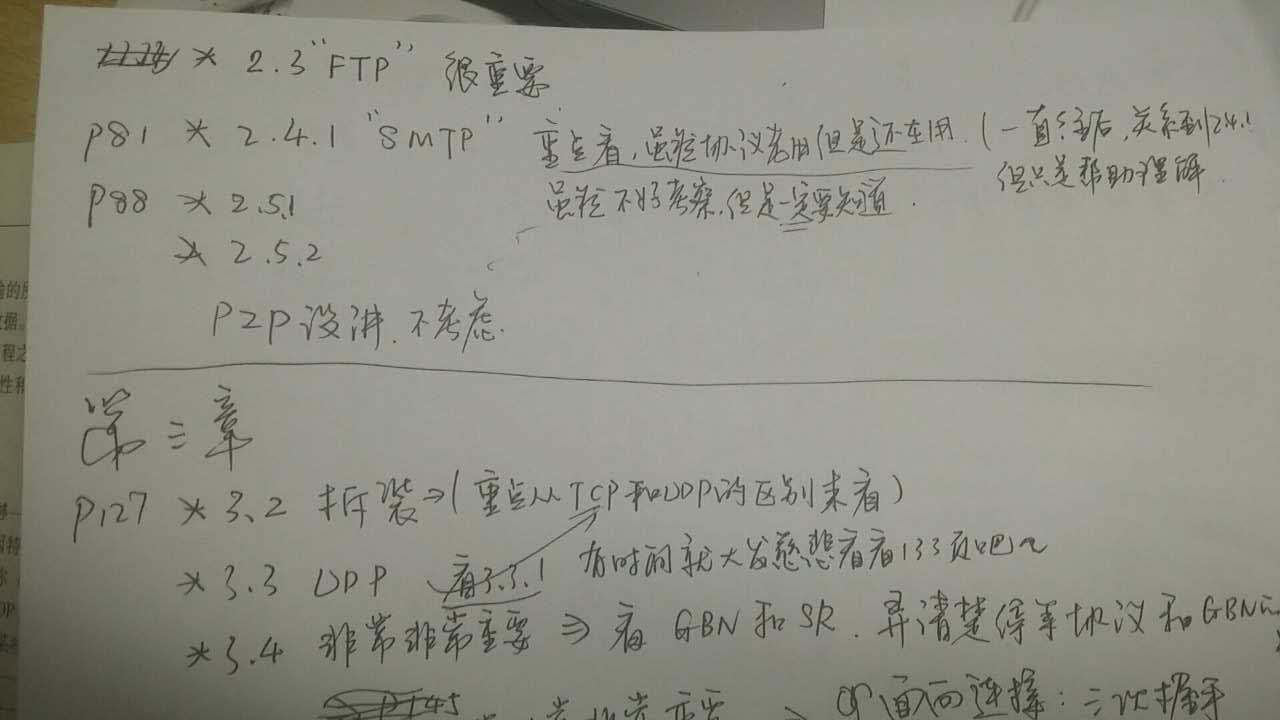 * 2.3 "FTP" 很重要
P81 * 2.4.1 "SMTP" 重点看,虽然协议老旧但是还在用. (一直到后,关系到2.4.1
P88 * 2.5.1 虽然不好考察,但是一定要知道. 但只是帮助理解.
* 2.5.2
P2P没讲.不考虑.
第三章
P127 * 3.2 拆装⇒(重点从TCP和UDP的区别来看)
* 3.3 UDP 看3.3.1 有时间就大发慈悲看看133页吧~
* 3.4 非常非常重要⇒看GBN和SR.弄清楚停等协议和GBN
P145 非常重要 面向连接:三次握手